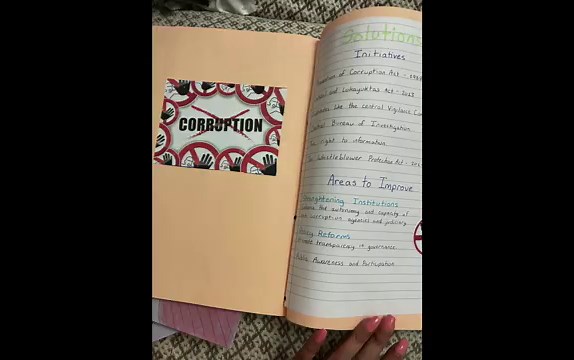 CORRUPTION
Solutions
Initiatives
of Corruption Act - 198
and Lokayuktas Act - 2013
like the central Vigilance Com
Bureau of Investigation
right to information
Whistleblower Protection Act -
Areas to Improve
Institutions
autonomy and capacity of
corruption agencies and judiciary
Reforms
transparency in governance
Awareness and Participation